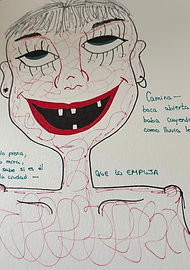 Camina—
boca abierta
baba cayendo
como lluvia
pena,
mira,
sabe si es él
ciudad —
QUE LO EMPUJA